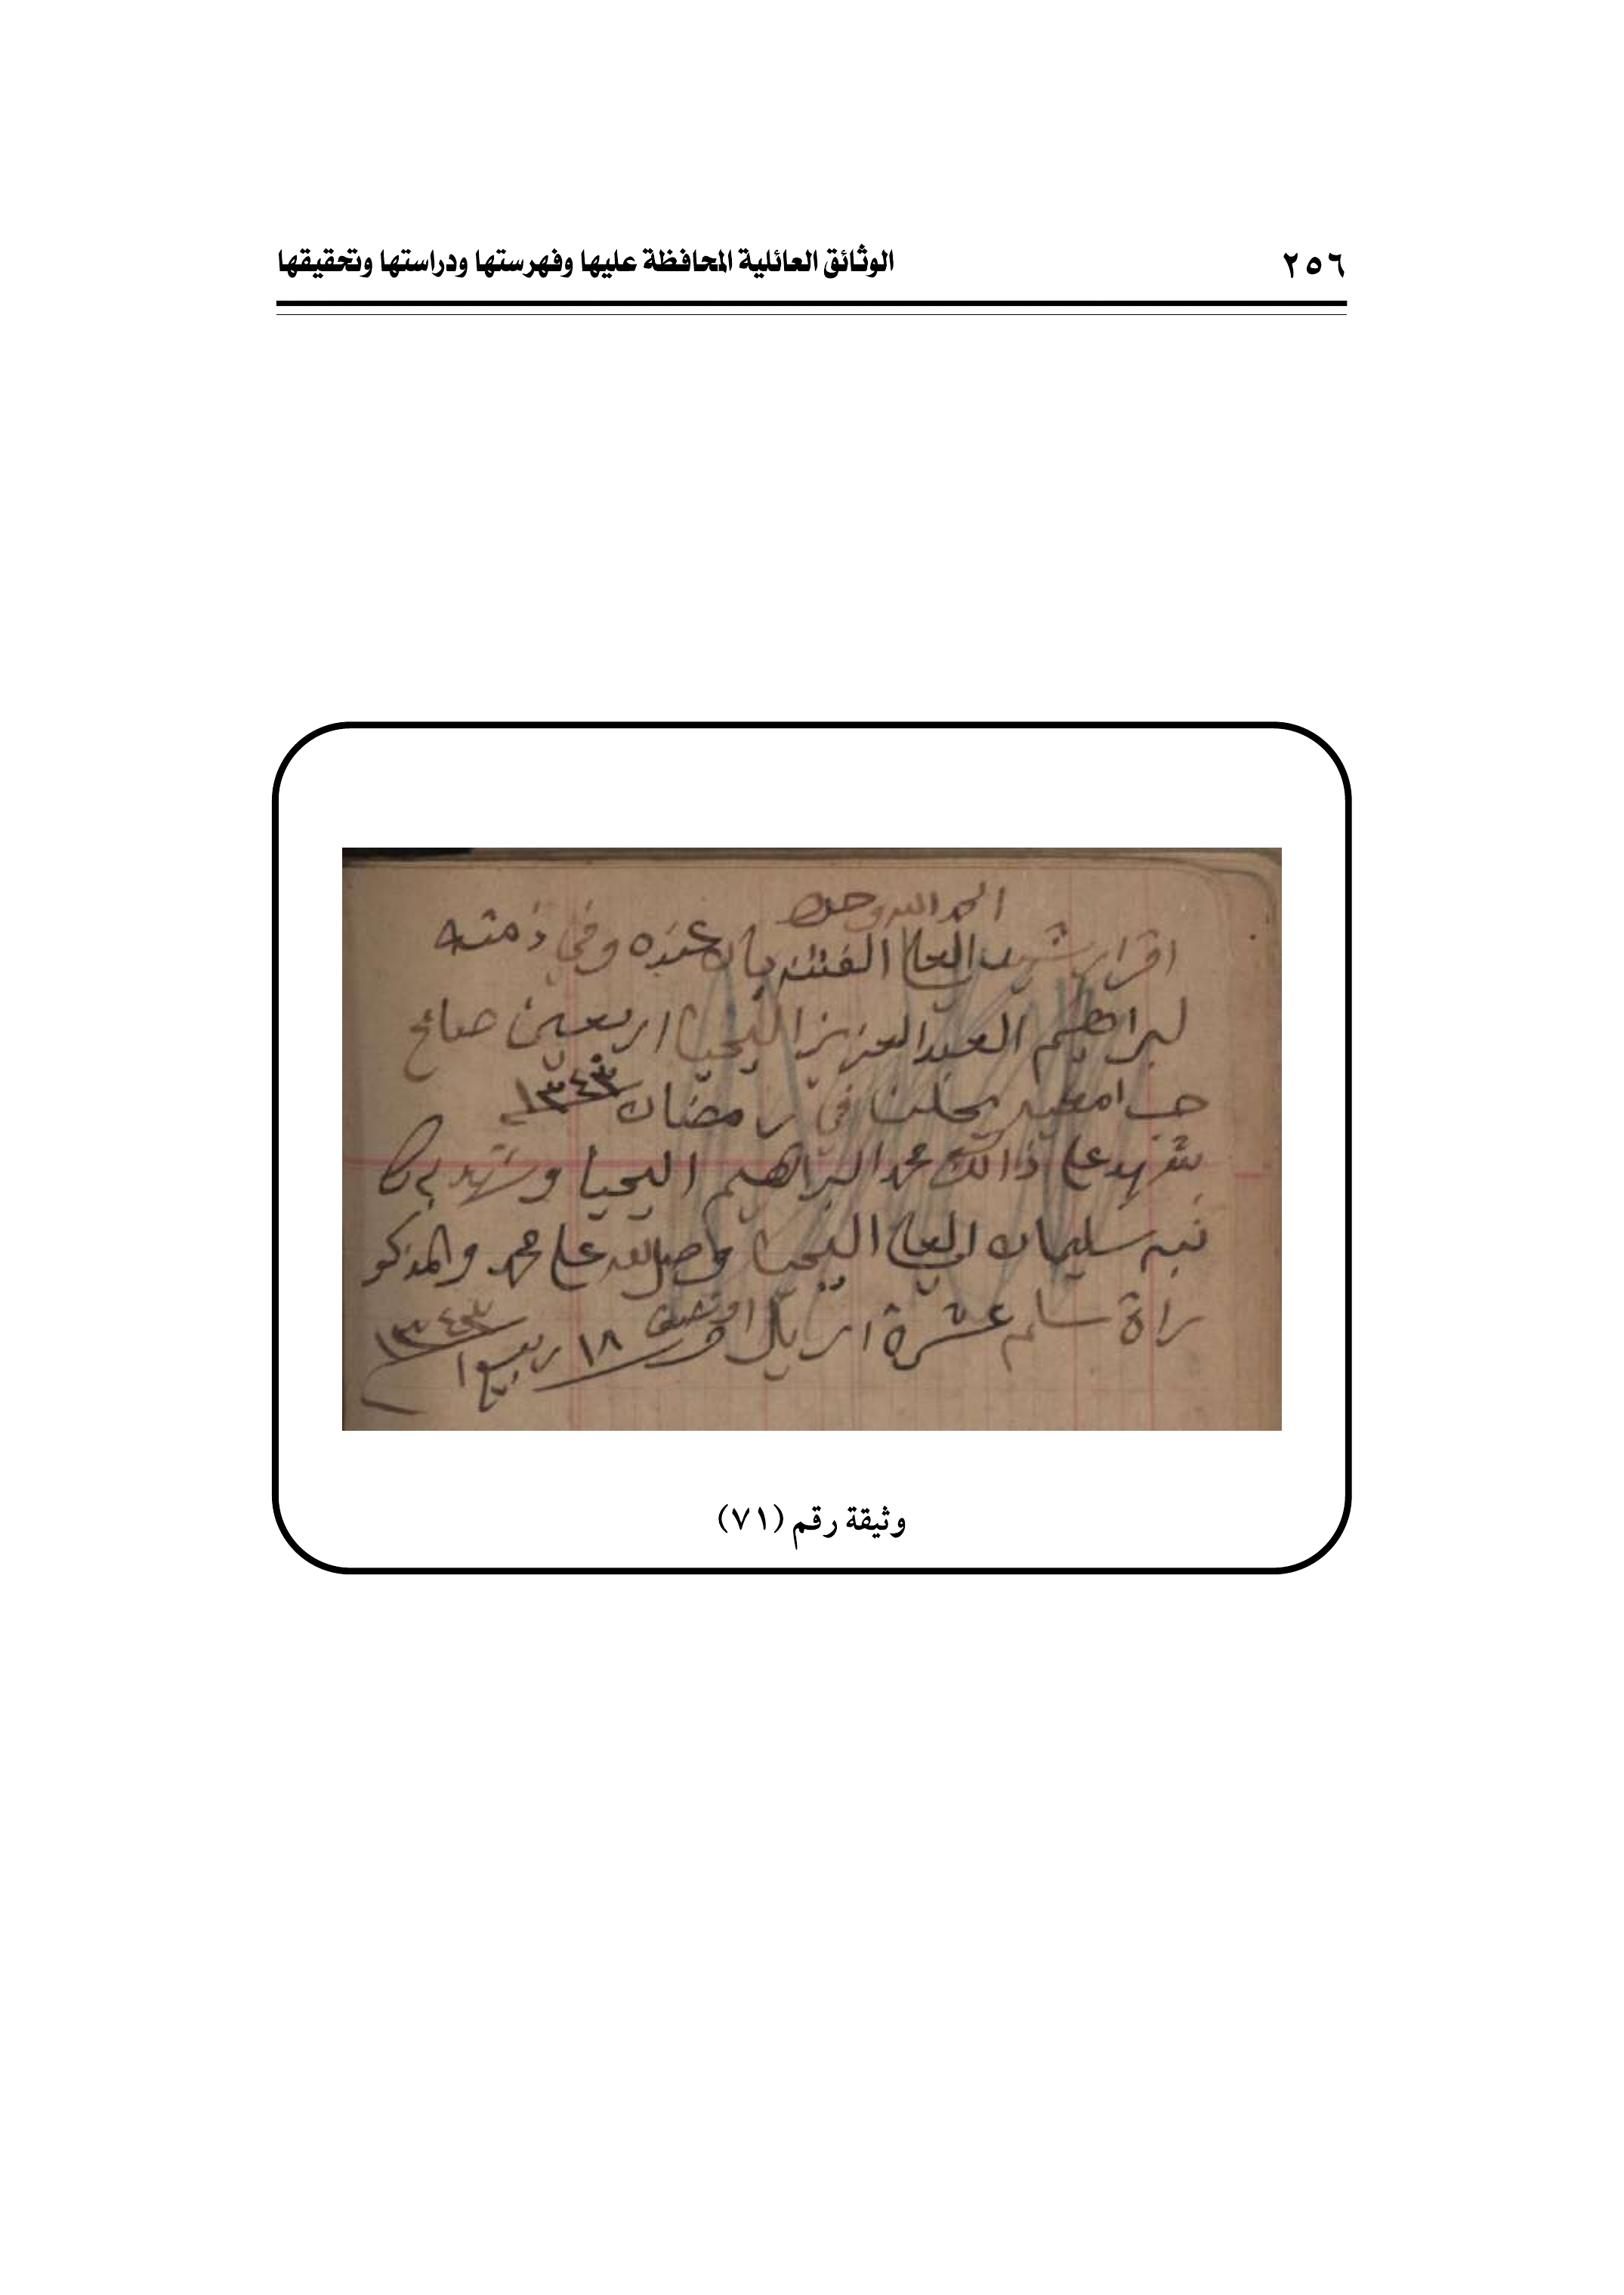 ٢٥٦
الوثائق العائلية المحافظة عليها وفهرستها ودراستها وتحقيقها
الحمد لله وحده
اقرار العلي بان عنده وفي ذمته
لبراهيم العبدالعزيز اليحيا اربعين صاع
حب يحلن في رمضان ١٣٤٣
شهد على ذالك محمد البراهيم اليحيا وشهد به كا
تبه سليمان العلي اليحيا وصلى الله على محمد والمذكو
راة سلم عشرة اريل ونصف ١٨ ربيع١ ١٣٤٣
وثيقة رقم (٧١)